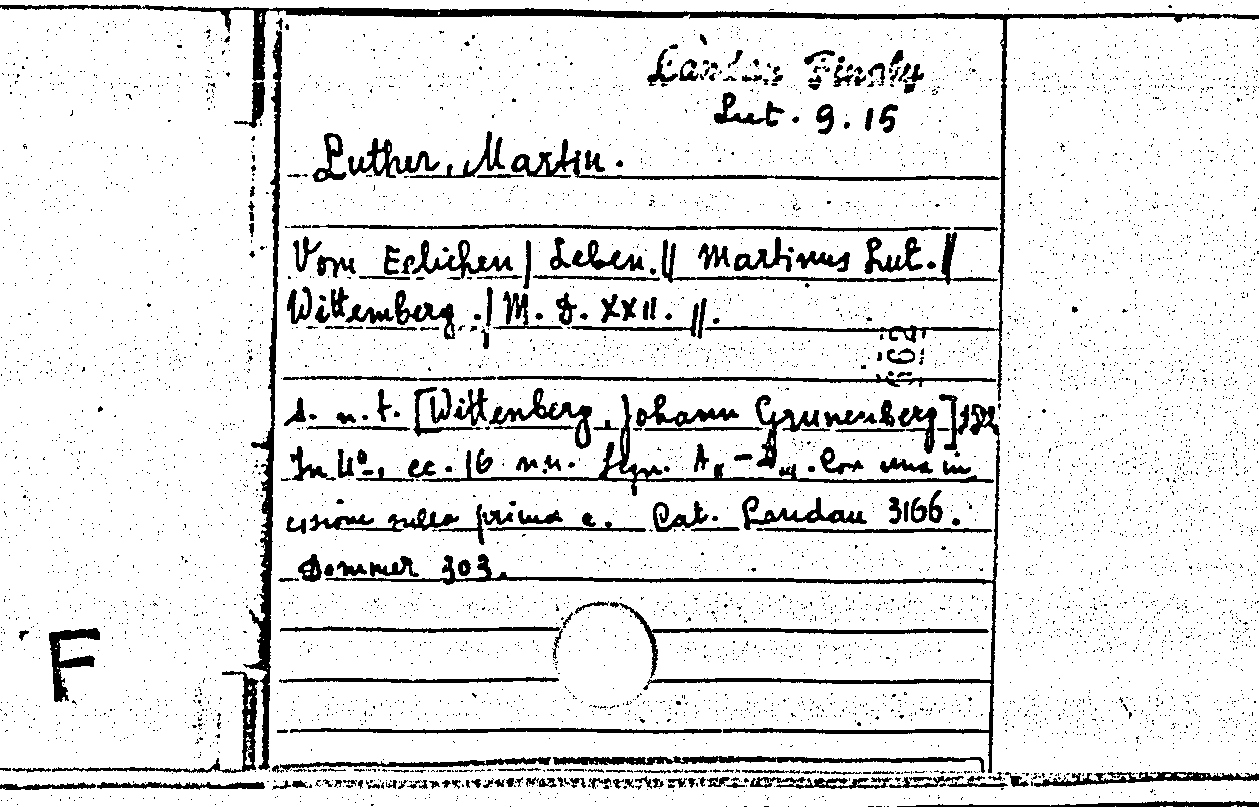 Landau Finaly
Lut. 9. 15
Luther, Martin.
Vom Eelichen | Leben. || Martinus Lut. ||
Wittemberg. | M. D. XXII. ||.
s. n. t. [Wittenberg, Johann Grunenberg] 1522
In 4º, cc. 16 n.n. Segn. A - D. Con una in
cisione sulla prima c. Cat. Landau 3166.
Dommer 303.
F